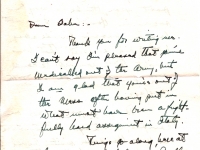 Dear Baker:-
Thank you for writing me.
I can't say I'm pleased that you're
medically out of the Army, but
I am glad that you're out of
the mess after having put in
what must have been a fright-
fully hard assignment in Italy.
Things go along here at